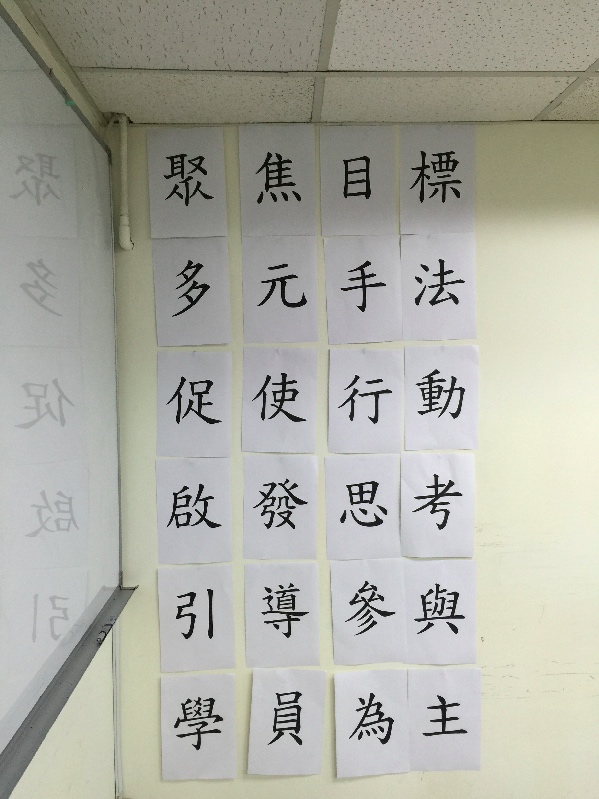 聚焦目標
多元手法
促使行動
啟發思考
引導參與
學員為主